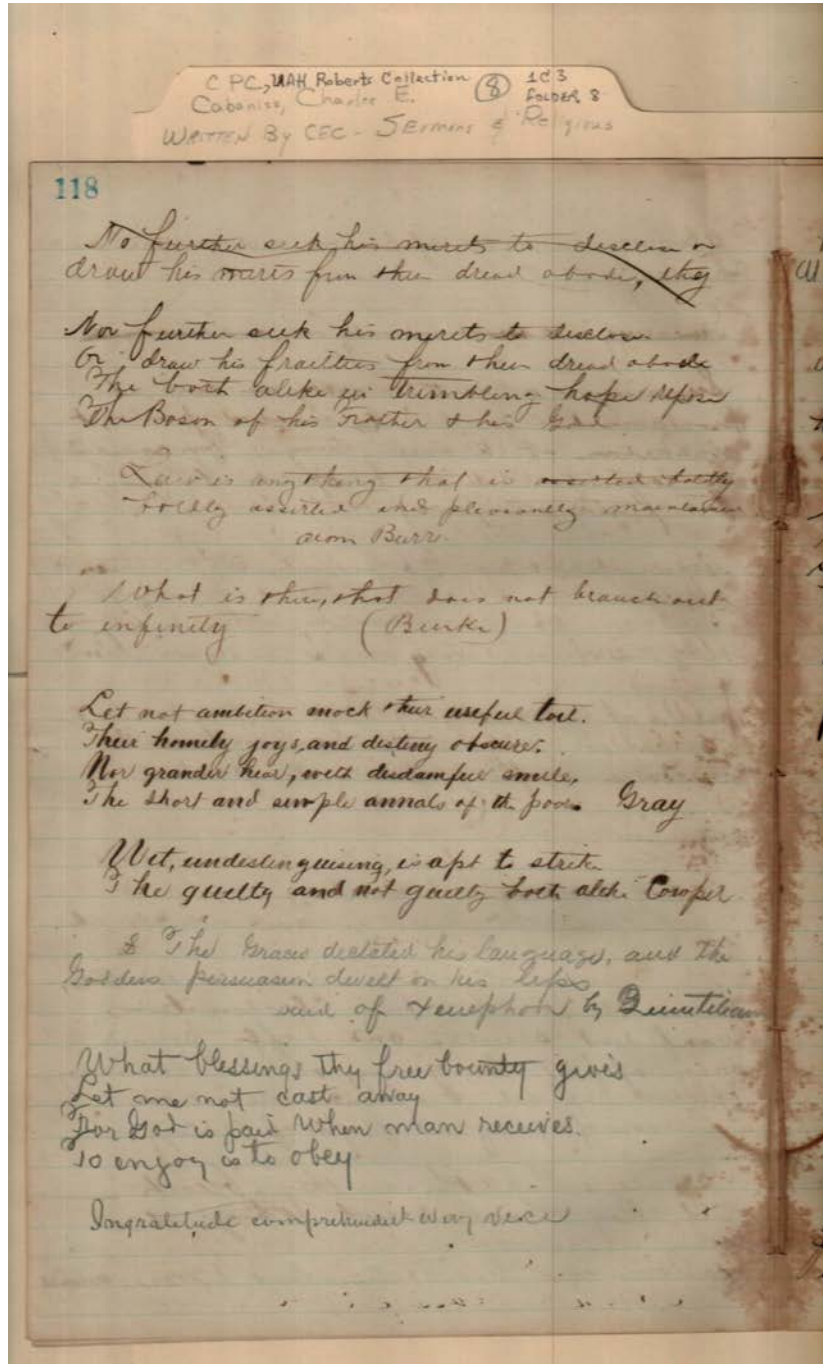 CPC, UAH Roberts Collection 8 1C3
Cabaniss, Charles E. FOLDER 8
WRITTEN By CEC - SERMONS & Religious
118
No further seek his merits to disclose or
draw his from their dread abode, they
Nor further seek his merits to disclose
Or draw his frailties from their dread abode
The both alike in trimbling hope repose
The Bosom of his Father & his God
Law is anything that is asserted boldly
boldly asserted and pleasantly maintained
aron Burr
What is there, that does not branch out
to infinity (Burke)
Let not ambition mock their useful toil.
Their homely joys, and destiny obscure.
Nor grander hear, with disdainful smile,
The short and simple annals of the poor. Gray
Wit, undistinguising, is apt to strike
The guilty and not guilty both alike Cowper
& The Graces dictated his language, and the
Goddess persuasion dwelt on his lips
said of Xenephon by Quintilian
What blessings thy free bounty gives
Let me not cast away
For God is paid When man receives.
To enjoy is to obey
Ingratitude comprehendeth every vice